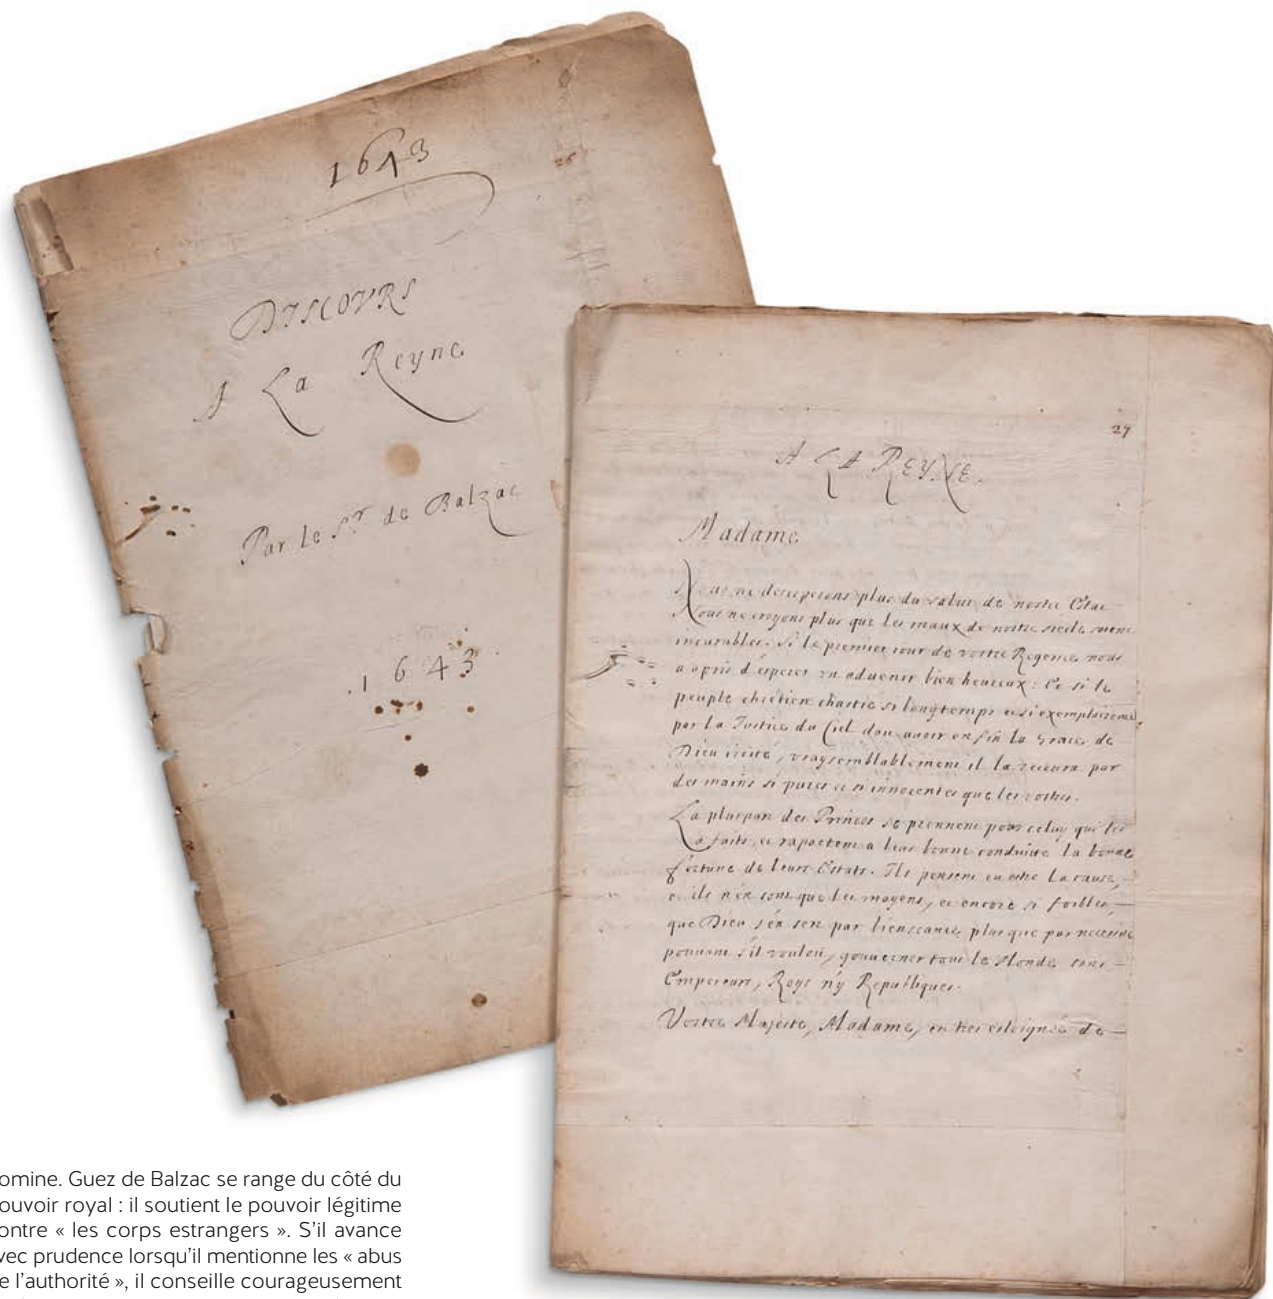 1643
26
DISCOVRS
A La Reyne
Par le Sr. de Balzac
.1643.
27
A LA REYNE.
Madame
Nous ne desesperons plus du salut de nostre Estat
Nous ne croyons plus que les maux de nostre siecle soient
incurables. Si le premier iour de vostre Regence nous
a apris d'esperer un aduenir bien heureux: Et si le
peuple chrétien chastié si longtemps et si exemplairement
par la Justice du Ciel doit auoir enfin la grace de
Dieu irrité, vraysemblablement il la receura par
des mains si pures et si innocentes que les vostres.
La pluspart des Princes se prennent pour celuy qui les
a faits, et raportent a leur bonne conduite la bonne
fortune de leurs Estats. Ils pensent en estre la cause,
et ils n'en sont que les moyens, et encore si foibles,
que Dieu s'en sert par bienseance plus que par necessité
pouuant s'il vouloit, gouuerner tout le Monde sans
Empereurs, Roys n'y Republiques.
Vostre Majesté, Madame, est tres esloignée de
omine. Guez de Balzac se range du côté du
ouvoir royal : il soutient le pouvoir légitime
ontre « les corps estrangers ». S'il avance
vec prudence lorsqu'il mentionne les « abus
e l'authorité », il conseille courageusement